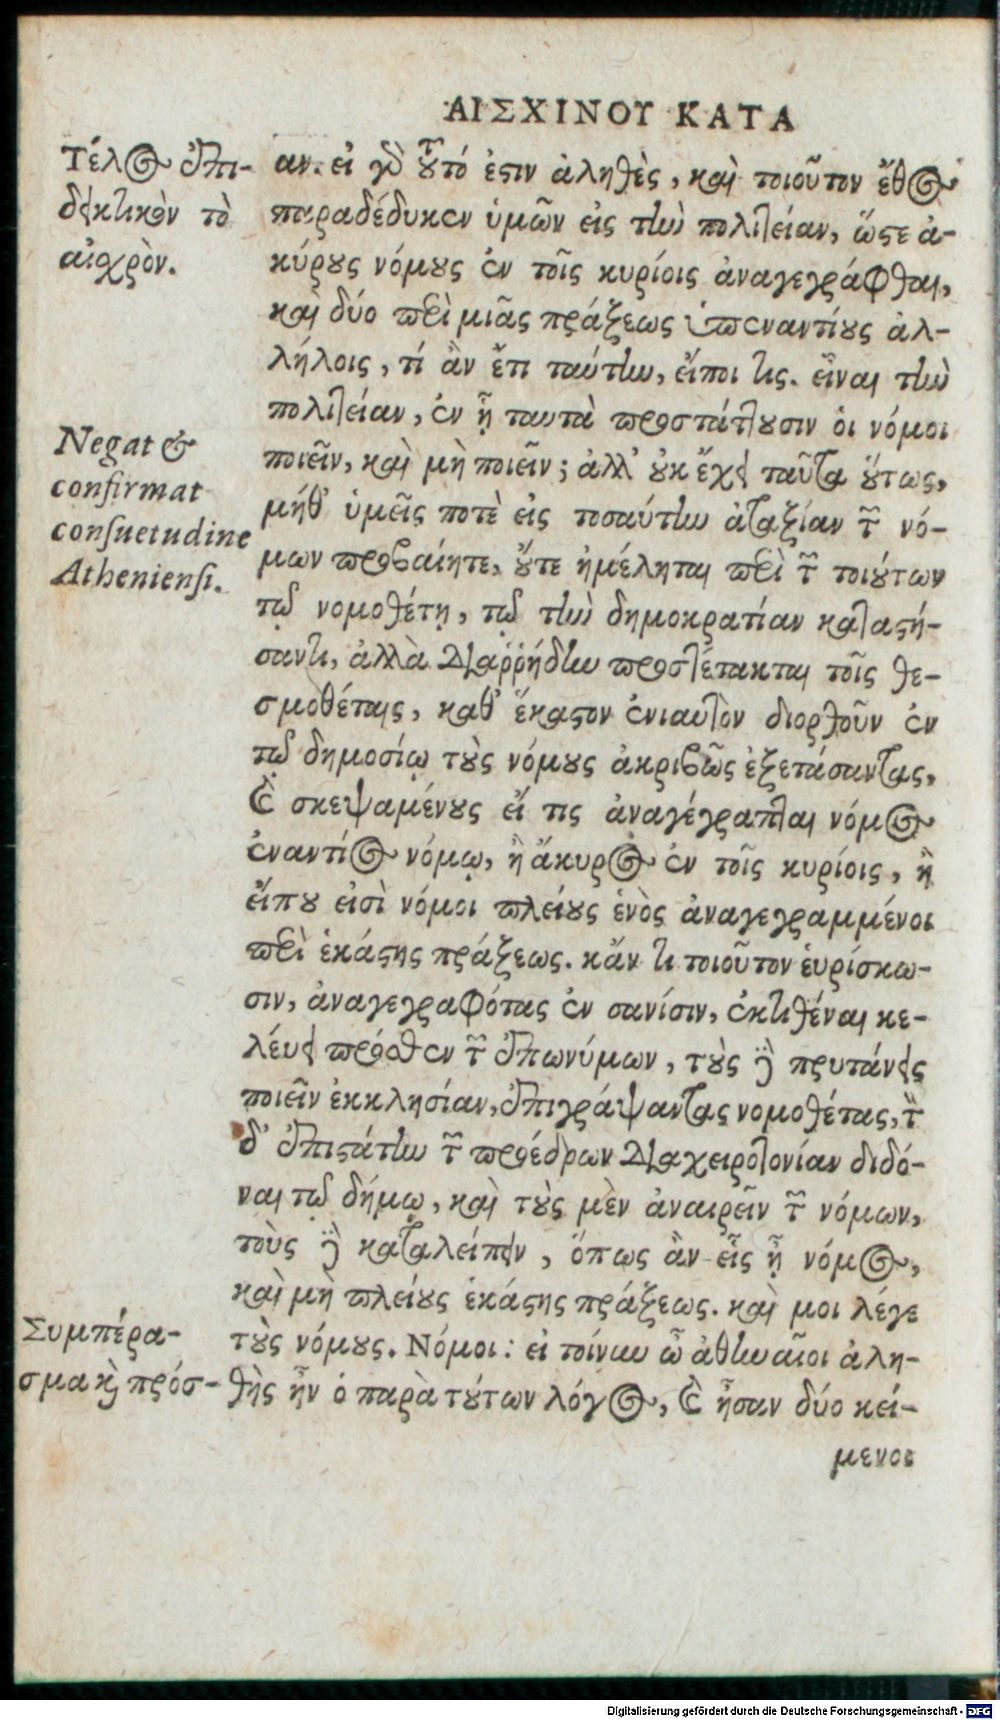 ΑΙΣΧΙΝΟΥ ΚΑΤΑ
Τέλος ἐπι-
δεικτικὸν τὸ
αἰσχρὸν.
αν. εἰ γὰρ τοῦτό ἐστιν ἀληθὲς, καὶ τοιοῦτον ἔθος
παραδέδυκεν ὑμῶν εἰς τὴν πολιτείαν, ὥστε ἀ-
κύρους νόμους ἐν τοῖς κυρίοις ἀναγεγράφθαι,
καὶ δύο περὶ μιᾶς πράξεως ὑπεναντίους ἀλ-
λήλοις, τί ἂν ἔτι ταύτην, εἴποι τις. εἶναι τὴν
πολιτείαν, ἐν ᾗ ταυτὰ προστάττουσιν οἱ νόμοι
ποιεῖν, καὶ μὴ ποιεῖν; ἀλλ' οὐκ ἔχει ταῦτα οὕτως,
μήθ' ὑμεῖς ποτὲ εἰς τοσαύτην ἀταξίαν τῶν νό-
μων προβαίητε, οὔτε ἠμέληται περὶ τῶν τοιούτων
τῷ νομοθέτῃ, τῷ τὴν δημοκρατίαν καταστή-
σαντι, ἀλλὰ διαῤῥήδην προστέτακται τοῖς θε-
σμοθέταις, καθ' ἕκαστον ἐνιαυτὸν διορθοῦν ἐν
τῷ δημοσίῳ τοὺς νόμους ἀκριβῶς ἐξετάσαντας,
καὶ σκεψαμένους εἴ τις ἀναγέγραπται νόμος
ἐναντίος νόμῳ, ἢ ἄκυρος ἐν τοῖς κυρίοις, ἢ
εἴπου εἰσὶ νόμοι πλείους ἑνὸς ἀναγεγραμμένοι
περὶ ἑκάστης πράξεως. κἄν τι τοιοῦτον εὑρίσκω-
σιν, ἀναγεγραφότας ἐν σανίσιν, ἐκτιθέναι κε-
λεύει πρόσθεν τῶν ἐπωνύμων, τοὺς δὲ πρυτάνεις
ποιεῖν ἐκκλησίαν, ἐπιγράψαντας νομοθέτας, τὸν
δ' ἐπιστάτην τῶν προέδρων διαχειροτονίαν διδό-
ναι τῷ δήμῳ, καὶ τοὺς μὲν ἀναιρεῖν τῶν νόμων,
τοὺς δὲ καταλείπειν, ὅπως ἂν εἷς ᾖ νόμος,
καὶ μὴ πλείους ἑκάστης πράξεως. καὶ μοι λέγε
τοὺς νόμους. Νόμοι: εἰ τοίνυν ὦ ἀθηναῖοι ἀλη-
θὴς ἦν ὁ παρὰ τούτων λόγος, καὶ ἦσαν δύο κεί-
μενοι
Negat &
confirmat
consuetudine
Atheniensi.
Συμπέρα-
σμα καὶ πρόσ-
Digitalisierung gefördert durch die Deutsche Forschungsgemeinschaft - DFG